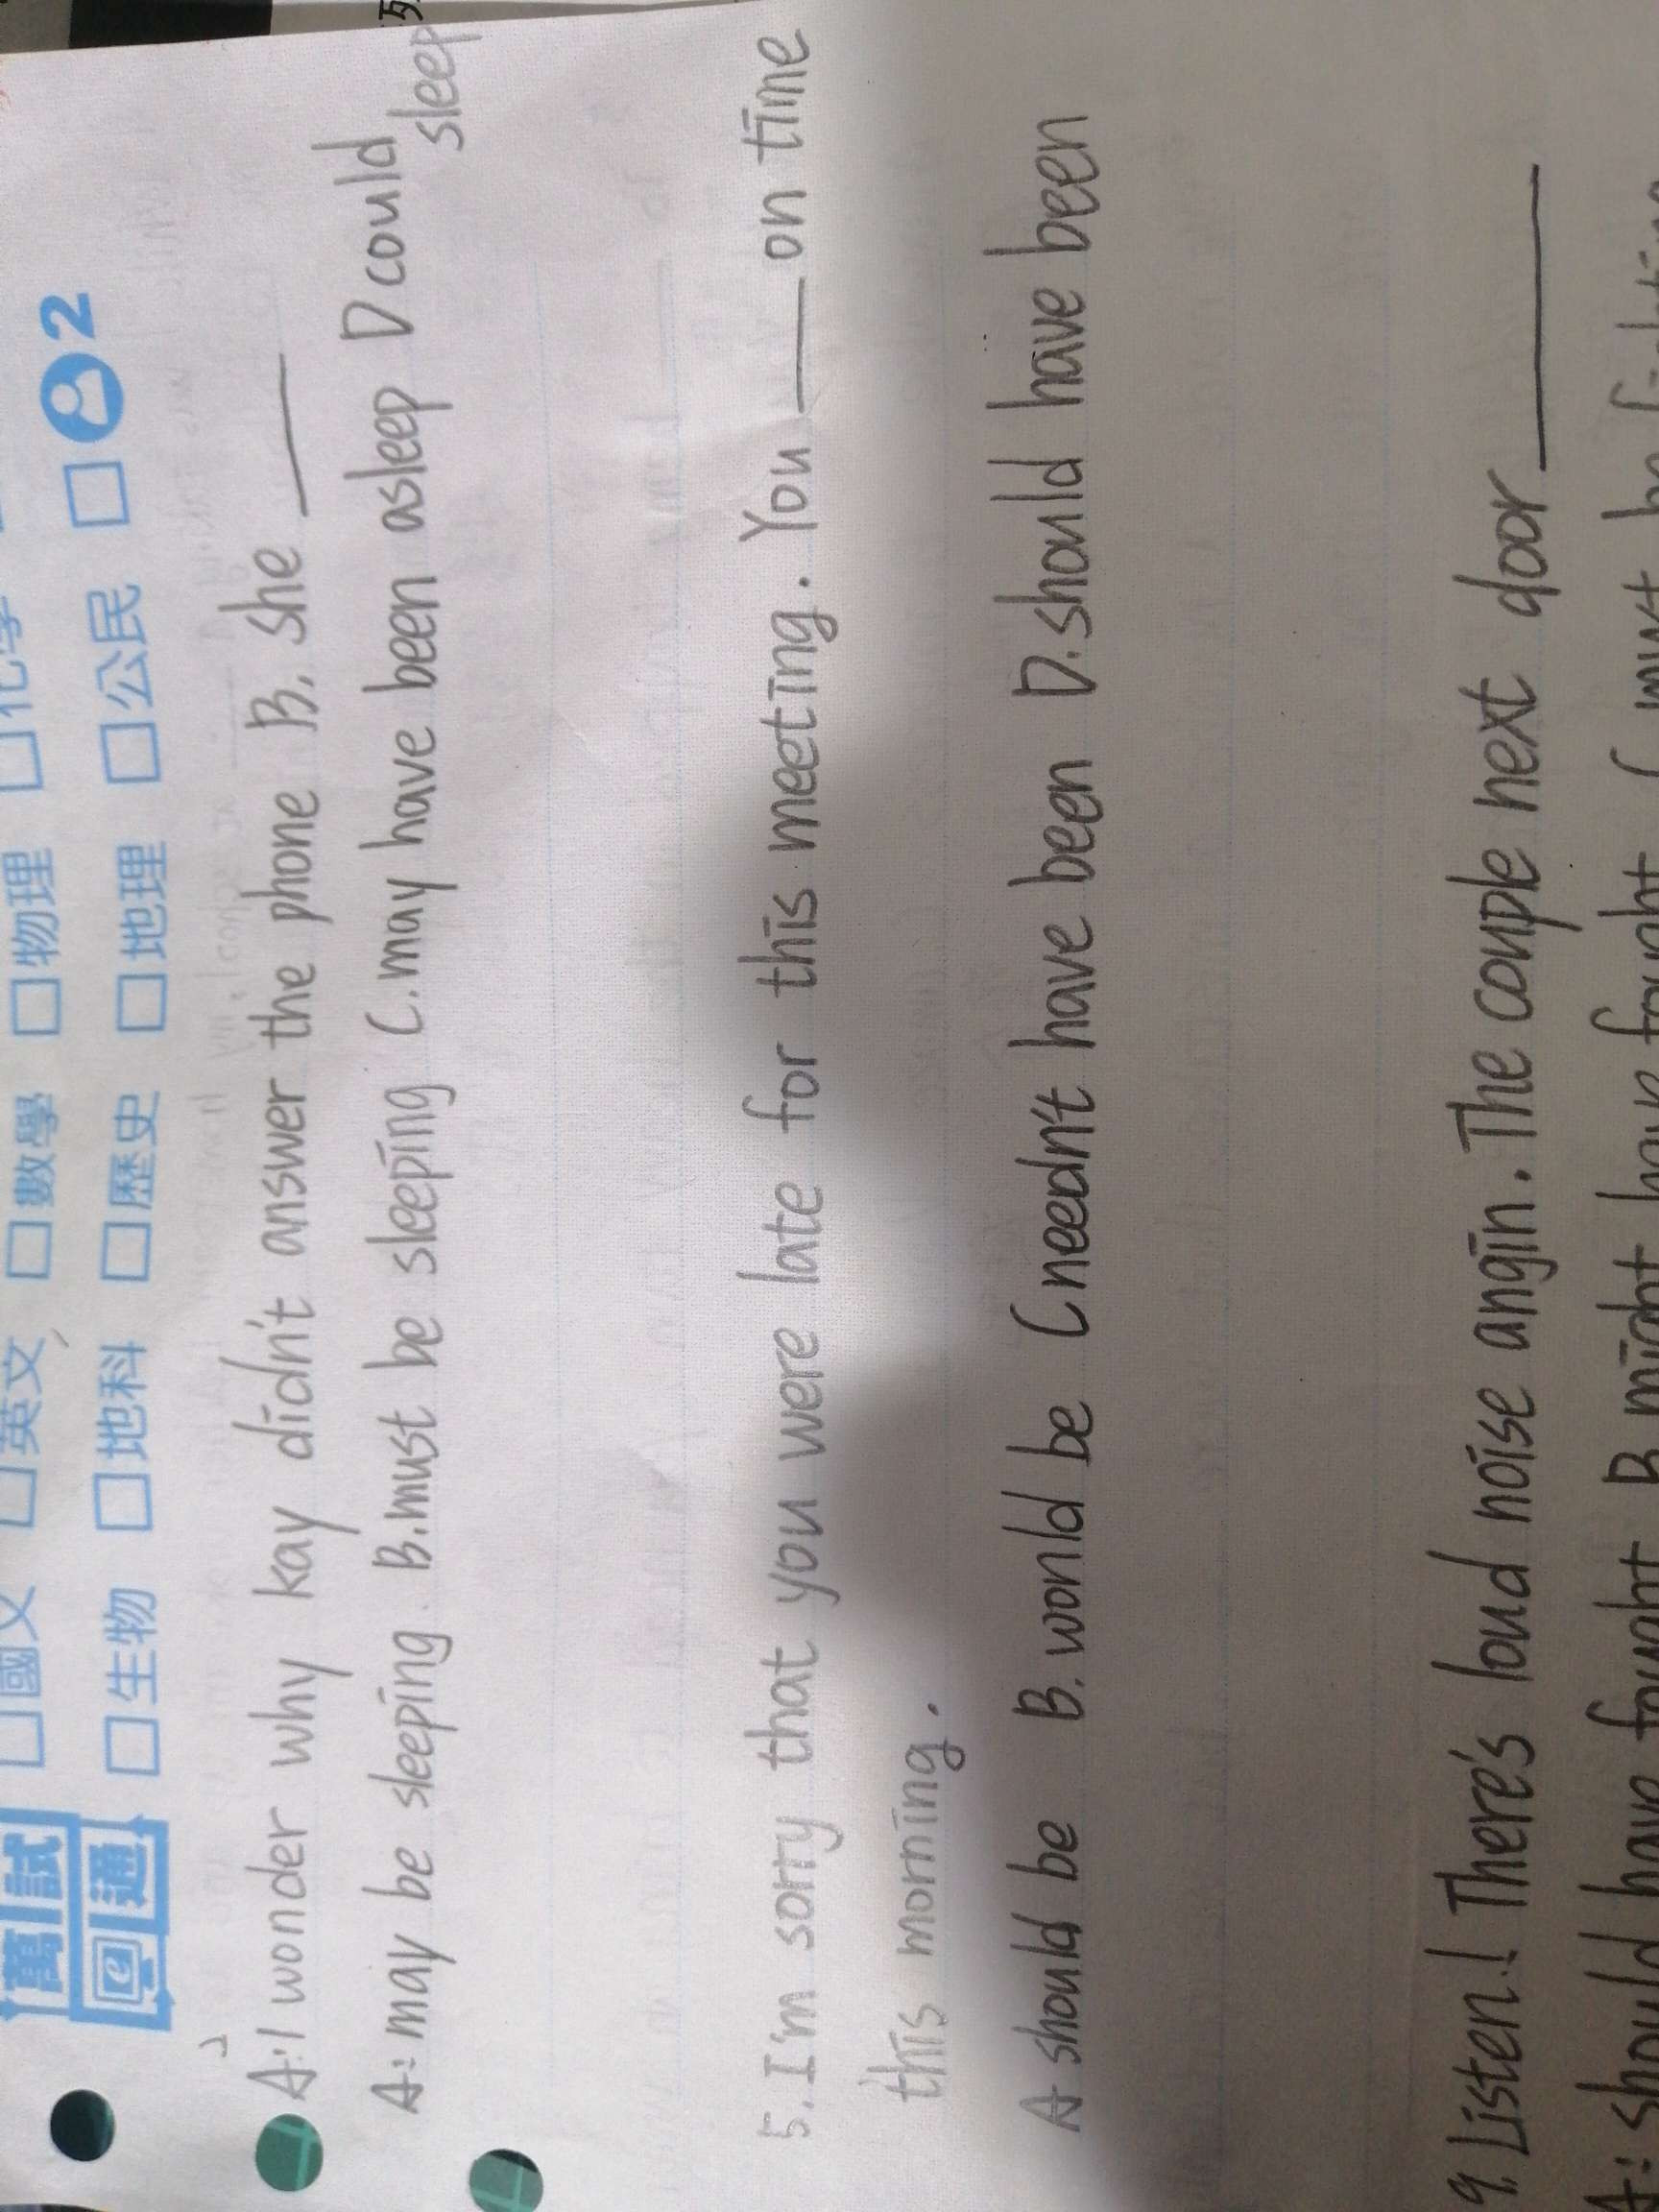 萬試
e 通
□國文 □英文 □數學 □物理 □化學
□生物 □地科 □歷史 □地理 □公民 □ 2
A: I wonder why kay didn't answer the phone B. she ____
A: may be sleeping. B. must be sleeping C. may have been asleep D could
sleep
5. I'm sorry that you were late for this meeting. You ____ on time
this morning.
A should be B. would be C needn't have been D. should have been
9. Listen! There's loud noise angin. The couple next door ____
A: should have fought B might have fought C must be fighting